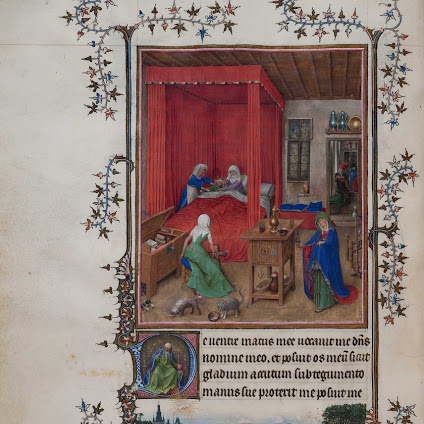 De uentre matris mee uocauit me dn̄s
nomine meo. et posuit os meū sicut
gladium acutum sub tegumento
manus sue protexit me posuit me